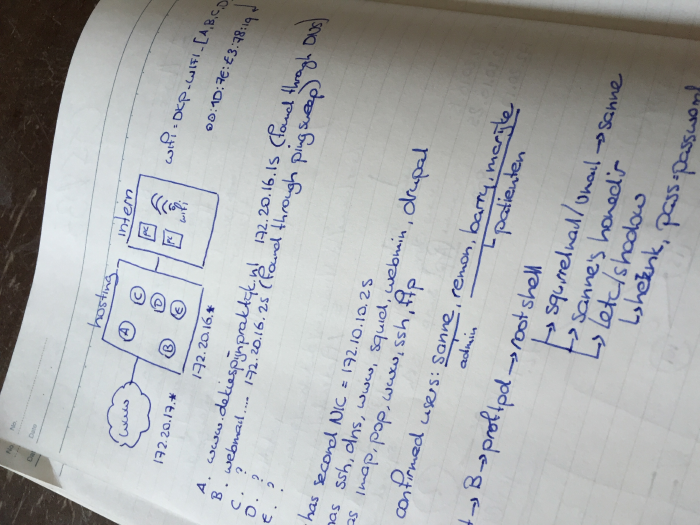 wifi = DKP-WIFI-[A,B,C,D]
00:1D:7E:E3:78:19
hosting
intern
www
A
B
C
D
E
PC
PC
wifi
172.20.17.*
172.20.16.*
A. www.dekiespijnpraktijk.nl 172.20.16.15 (found through DNS)
B. webmail.... 172.20.16.25 (found through pingsweep)
C. ?
D. ?
E. ?
has second NIC = 172.10.10.25
has ssh, dns, www, squid, webmin, drupal
as imap, pop, www, ssh, ftp
confirmed users: sanne, remon, barry, marijke
admin
↳ patienten
→ B → proftpd → root shell
↳ squirrelmail/Umail → sanne
↳ sanne's homedir
↳ /etc/shadow
↳ henk, pass: password